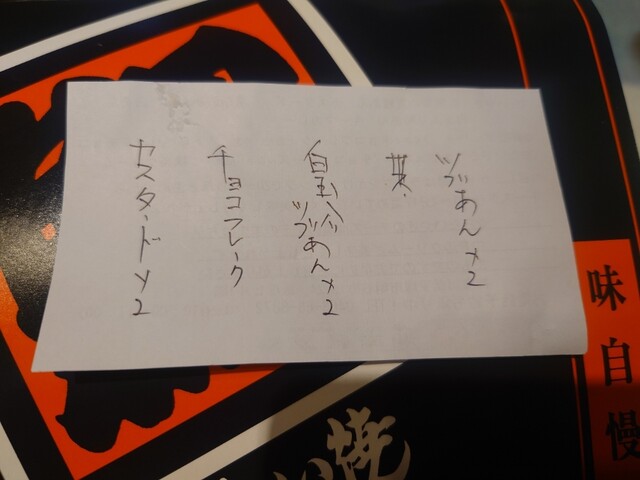 ツブあん×2
白玉入りツブあん×2
チョコフレーク
カスタードx2
味自慢
焼